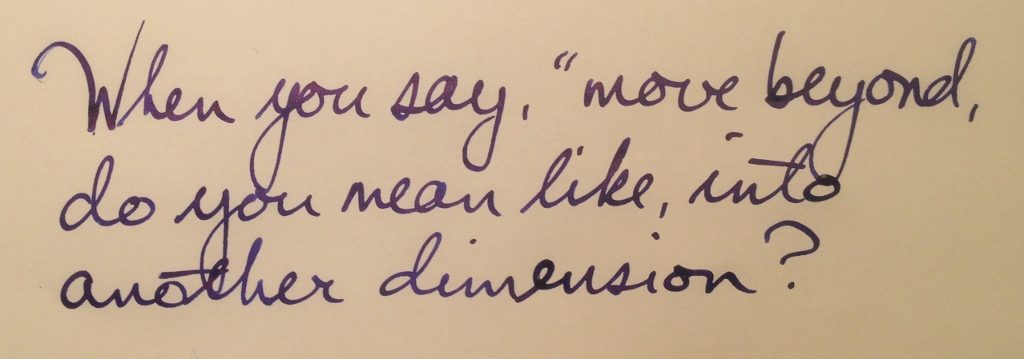 When you say, “move beyond,
do you mean like, into
another dimension?